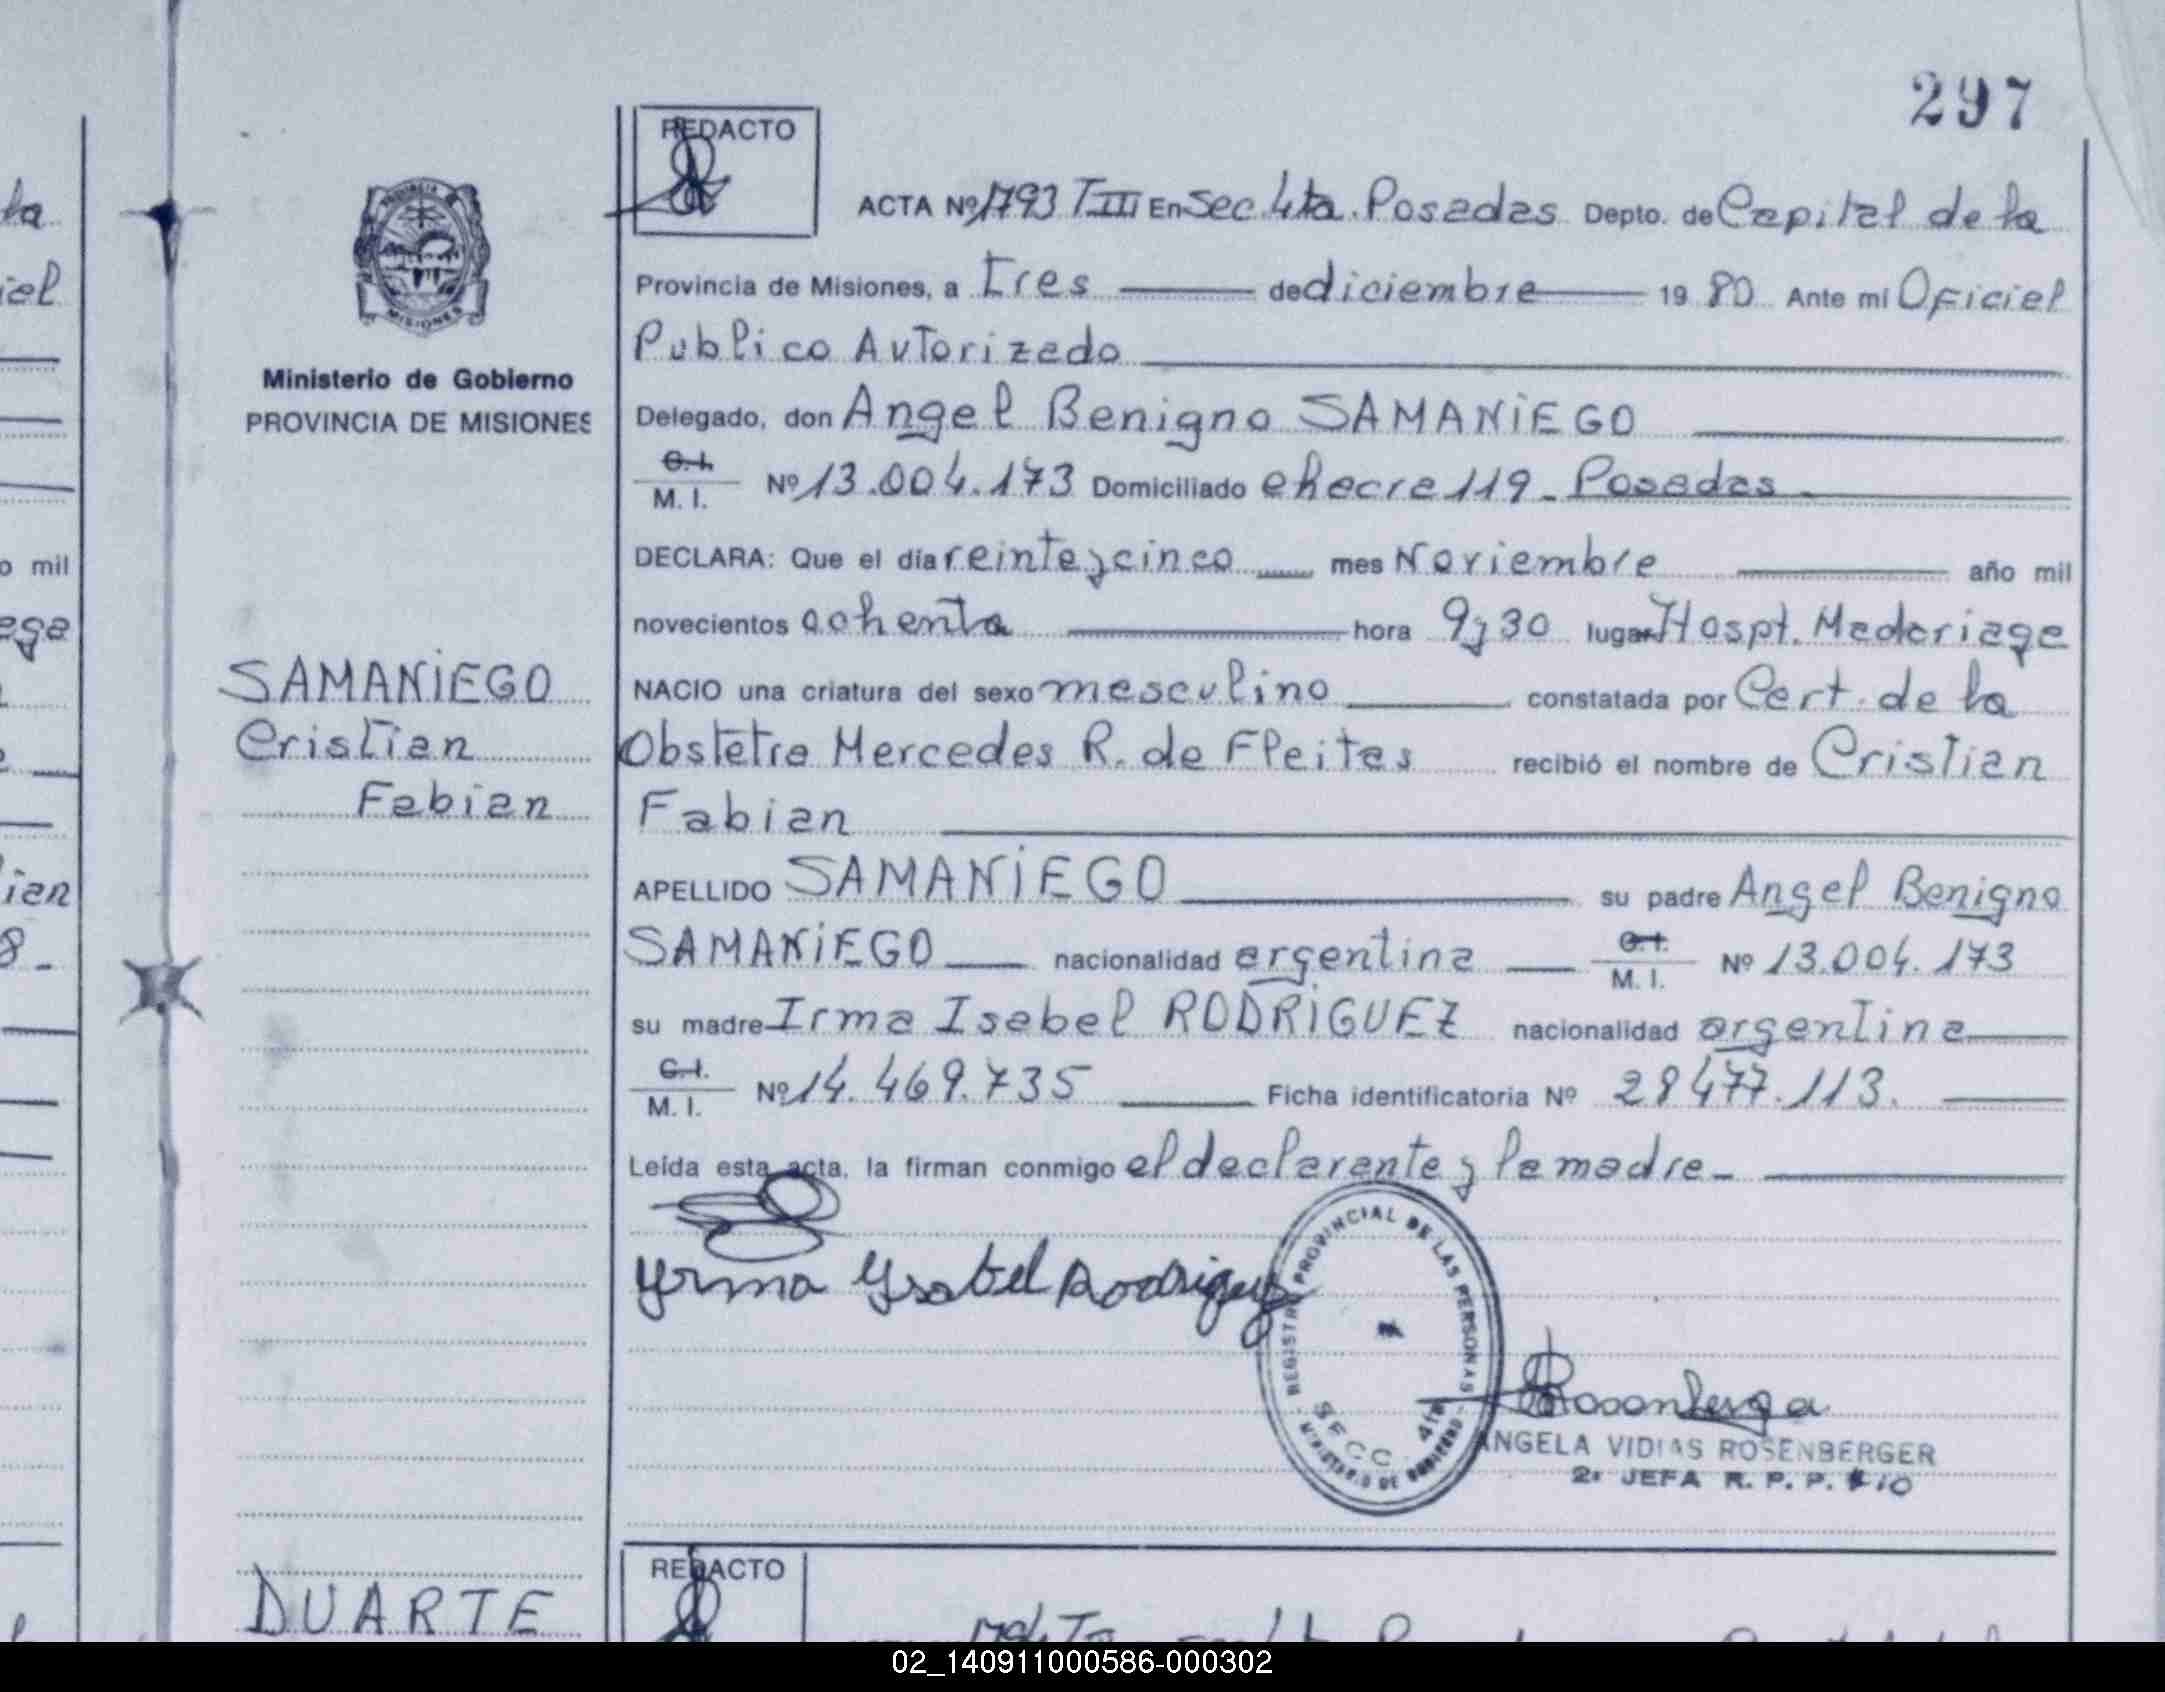 297
REDACTO
ACTA Nº 1793 TIII En Sec. 4ta. Posadas Depto. de Capital de la
Provincia de Misiones, a tres de diciembre 19 80 Ante mi Oficial
Publico Autorizado
Delegado, don Angel Benigno SAMANIEGO
C.I.
M. I. Nº 13.004.173 Domiciliado chacra 119 - Posadas -
DECLARA: Que el día veinte y cinco mes Noviembre año mil
novecientos ochenta hora 9 y 30 lugar Hospt. Madariaga
NACIO una criatura del sexo masculino constatada por Cert. de la
Obstetra Mercedes R. de Fleitas recibió el nombre de Cristian
Fabian
APELLIDO SAMANIEGO su padre Angel Benigno
SAMANIEGO nacionalidad argentina C.I. M. I. Nº 13.004.173
su madre Irma Isabel RODRIGUEZ nacionalidad argentina
C.I.
M. I. Nº 14.469.735 Ficha identificatoria Nº 28477.113.
Leída esta acta, la firman conmigo el declarante y la madre -
Yrma Ysabel Rodriguez
REGISTRO PROVINCIAL DE LAS PERSONAS
SECC. 4ta
MINISTERIO DE GOBIERNO
ANGELA VIDIAS ROSENBERGER
2ª JEFA R. P. P.
PROVINCIA
MISIONES
Ministerio de Gobierno
PROVINCIA DE MISIONES
SAMANIEGO
Cristian
Fabian
DUARTE
REDACTO
o mil
02_140911000586-000302